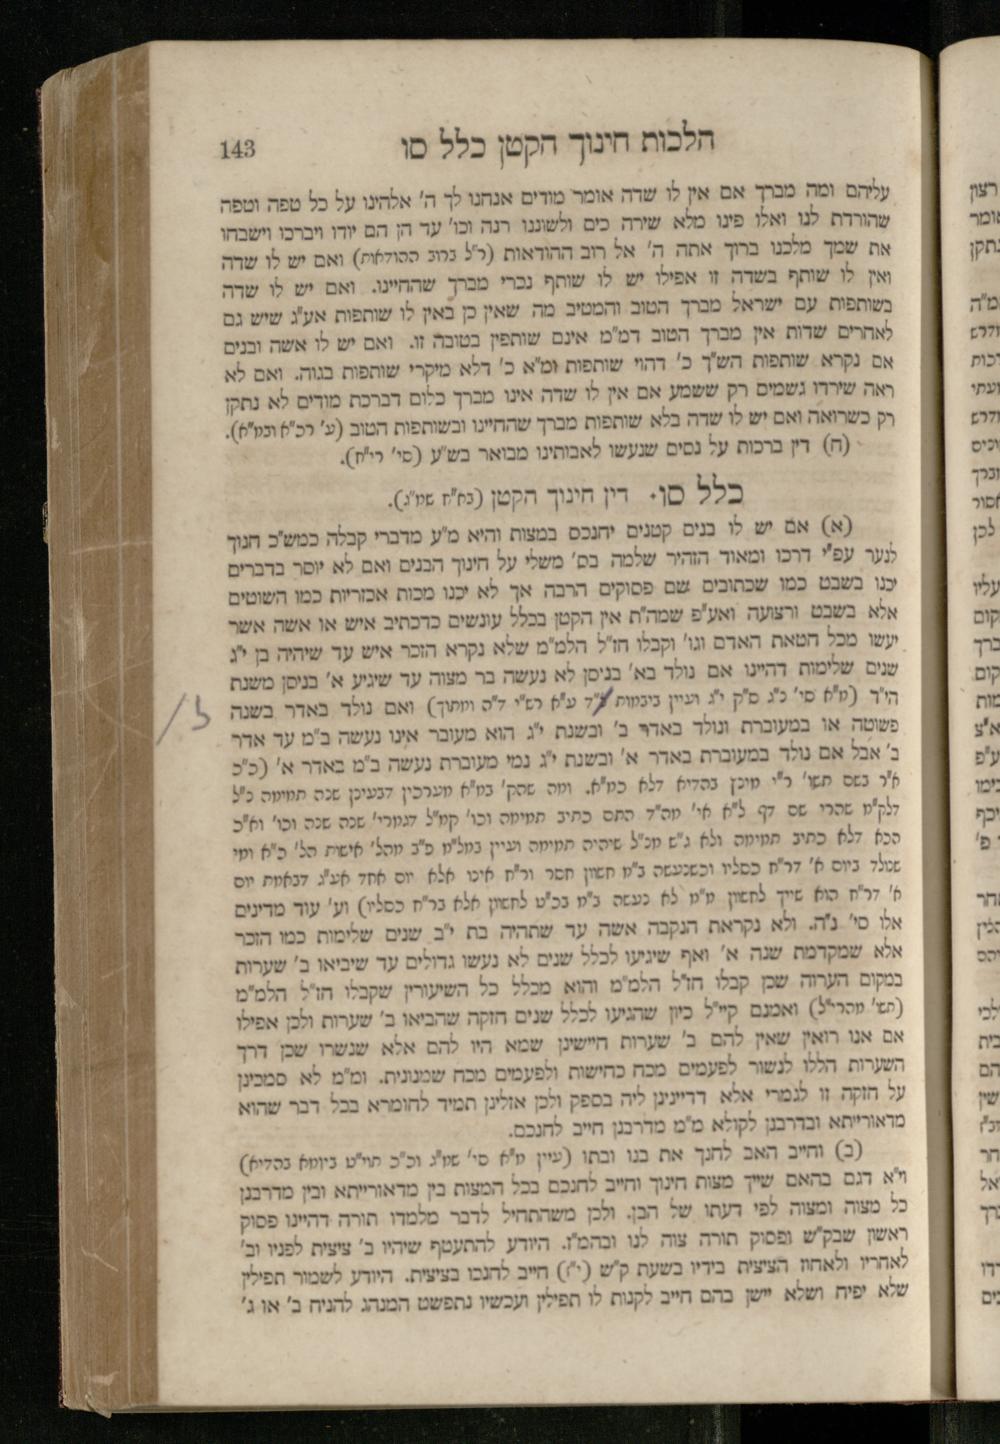 הלכות חינוך הקטן כלל סו 143
עליהם ומה מברך אם אין לו שדה אומר מודים אנחנו לך ה' אלהינו על כל טפה וטפה
שהורדת לנו ואלו פינו מלא שירה כים ולשוננו רנה וכו' עד הן הם יודו ויברכו וישבחו
את שמך מלכנו ברוך אתה ה' אל רוב ההודאות (ר"ל ברוב ההודאות) ואם יש לו שדה
ואין לו שותף בשדה זו אפילו יש לו שותף נכרי מברך שהחיינו. ואם יש לו שדה
בשותפות עם ישראל מברך הטוב והמטיב מה שאין כן באין לו שותפות אע"ג שיש גם
לאחרים שדות אין מברך הטוב דמ"מ אינם שותפין בטובה זו. ואם יש לו אשה ובנים
אם נקרא שותפות הש"ך כ' דהוי שותפות ומ"א כ' דלא מיקרי שותפות בגוה. ואם לא
ראה שירדו גשמים רק ששמע אם אין לו שדה אינו מברך כלום דברכת מודים לא נתקן
רק כשרואה ואם יש לו שדה בלא שותפות מברך שהחיינו ובשותפות הטוב (ע' רכ"א ובמ"א).
(ח) דין ברכות על נסים שנעשו לאבותינו מבואר בש"ע (סי' רי"ח).
כלל סו. דין חינוך הקטן (בא"ח שמ"ג).
(א) אם יש לו בנים קטנים יחנכם במצות והיא מ"ע מדברי קבלה כמש"כ חנוך
לנער עפ"י דרכו ומאוד הזהיר שלמה בס' משלי על חינוך הבנים ואם לא יוסר בדברים
יכנו בשבט כמו שכתובים שם פסוקים הרבה אך לא יכנו מכות אכזריות כמו השוטים
אלא בשבט ורצועה ואע"פ שמה"ת אין הקטן בכלל עונשים כדכתיב איש או אשה אשר
יעשו מכל חטאת האדם וגו' וקבלו חז"ל הלמ"מ שלא נקרא הזכר איש עד שיהיה בן י"ג
שנים שלימות דהיינו אם נולד בא' בניסן לא נעשה בר מצוה עד שיגיע א' בניסן משנת
הי"ד (מ"א סי' נ"ג ס"ק י"ג ועיין ביבמות ע"א רש"י ד"ה ומתוך) ואם נולד באדר בשנה
פשוטה או במעוברת ונולד באדר ב' ובשנת י"ג הוא מעובר אינו נעשה ב"מ עד אדר
ב' אבל אם נולד במעוברת באדר א' ובשנת י"ג נמי מעוברת נעשה ב"מ באדר א' (כ"כ
א"ר בשם תשו' ר"י מינץ בהדיא דלא כמ"א. ומה שהק' במ"א מערכין דבעינן שנה תמימה כ"ל
דלק"מ שהרי שם דף ל"א אי' מה"ד התם כתיב תמימה וכו' קמ"ל דגמרי' שנה שנה וכו' וא"כ
הכא דלא כתיב תמימה ולא ג"ש מנ"ל שיהיה תמימה ועיין במל"מ פ"ב מהל' אישות הל' כ"א ומי
שנולד ביום א' דר"ח כסליו וכשנעשה ב"מ חשון חסר ור"ח אינו אלא יום אחד אע"ג דבאמת יום
א' דר"ח הוא שייך לחשון מ"מ לא נעשה ב"מ בכ"ט לחשון אלא בר"ח כסליו) וע' עוד מדינים
אלו סי' נ"ה. ולא נקראת הנקבה אשה עד שתהיה בת י"ב שנים שלימות כמו הזכר
אלא שמקדמת שנה א' ואף שיגיעו לכלל שנים לא נעשו גדולים עד שיביאו ב' שערות
במקום הערוה שכן קבלו חז"ל הלמ"מ והוא מכלל כל השיעורין שקבלו חז"ל הלמ"מ
(תשו' מהרי"ל) ואמנם קיי"ל כיון שהגיעו לכלל שנים חזקה שהביאו ב' שערות ולכן אפילו
אם אנו רואין שאין להם ב' שערות חיישינן שמא היו להם אלא שנשרו שכן דרך
השערות הללו לנשור לפעמים מכח כחישות ולפעמים מכח שמנונית. ומ"מ לא סמכינן
על חזקה זו לגמרי אלא דדיינינן ליה בספק ולכן אזלינן תמיד לחומרא בכל דבר שהוא
מדאורייתא ובדרבנן לקולא מ"מ מדרבנן חייב לחנכם.
(ב) וחייב האב לחנך את בנו ובתו (עיין מ"א סי' שמ"ג וכ"כ תוי"ט ביומא בהדיא)
וי"א דגם בהאם שייך מצות חינוך וחייב לחנכם בכל המצות בין מדאורייתא ובין מדרבנן
כל מצוה ומצוה לפי דעתו של הבן. ולכן משהתחיל לדבר מלמדו תורה דהיינו פסוק
ראשון שבק"ש ופסוק תורה צוה לנו ובהמ"ז. היודע להתעטף שיהיו ב' ציצית לפניו וב'
לאחריו ולאחוז הציצית בידיו בשעת ק"ש (י"ז) חייב לחנכו בציצית. היודע לשמור תפילין
שלא יפיח ושלא יישן בהם חייב לקנות לו תפילין ועכשיו נתפשט המנהג להניח ב' או ג'